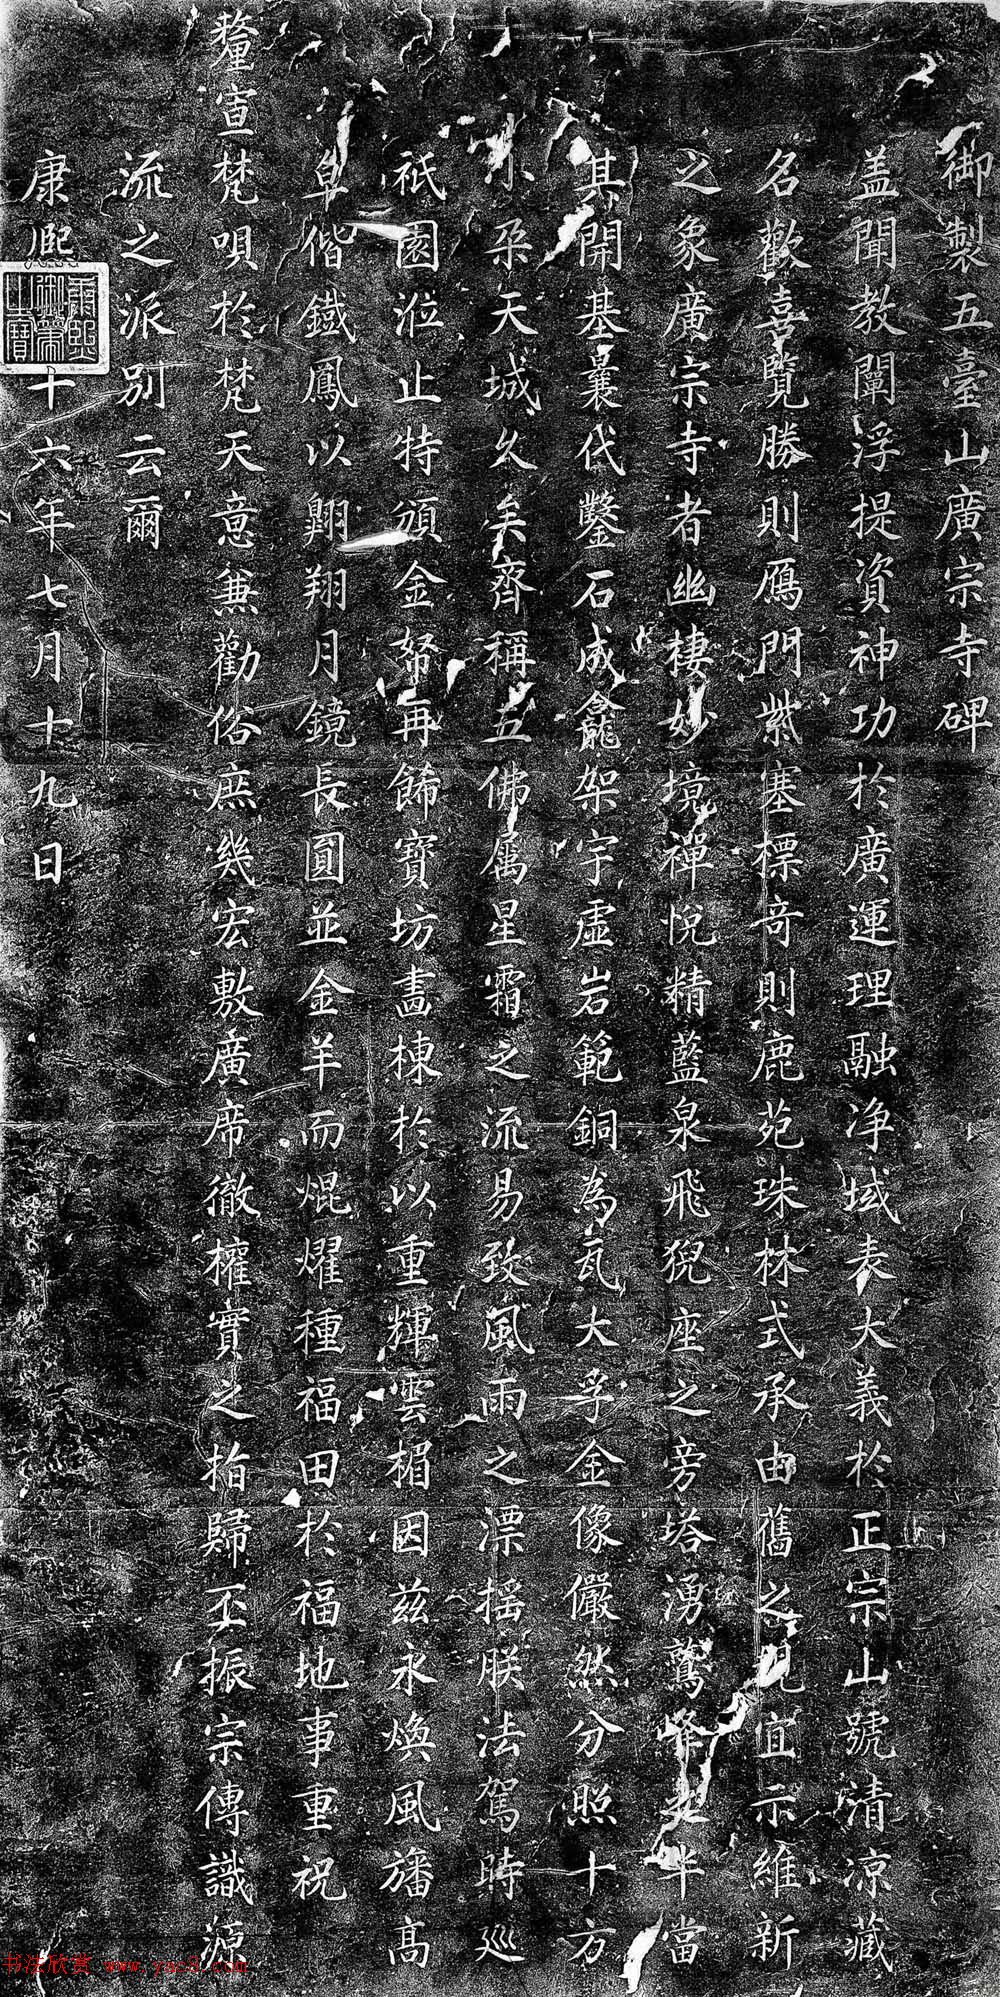 御製五臺山廣宗寺碑
盖聞教闡浮提資神功於廣運理融净域表大義於正宗山號清凉藏
名歡喜覽勝則鴈門紫塞標奇則鹿苑珠林式承由舊之見宜示維新
之象廣宗寺者幽棲妙境禪悅精藍泉飛猊座之旁塔湧鷲峰之半當
其開基曩代鑿石成龕架宇虛岩範銅為瓦大孚金像儼然分照十方
小朶天城久矣齊稱五佛属星霜之流易致風雨之漂搖朕法駕時巡
祇園涖止特頒金帑再餙寶坊畫棟於以重輝雲楣因兹永煥風旛高
卓偕鐵鳳以翺翔月鏡長圓並金羊而焜燿種福田於福地事重祝
釐宣梵唄於梵天意兼勸俗庶幾宏敷廣席徹權實之指歸丕振宗傳識源
流之派別云爾
康熙 十六年七月十九日
康熙御筆之寶
书法欣赏 www.yac8.com